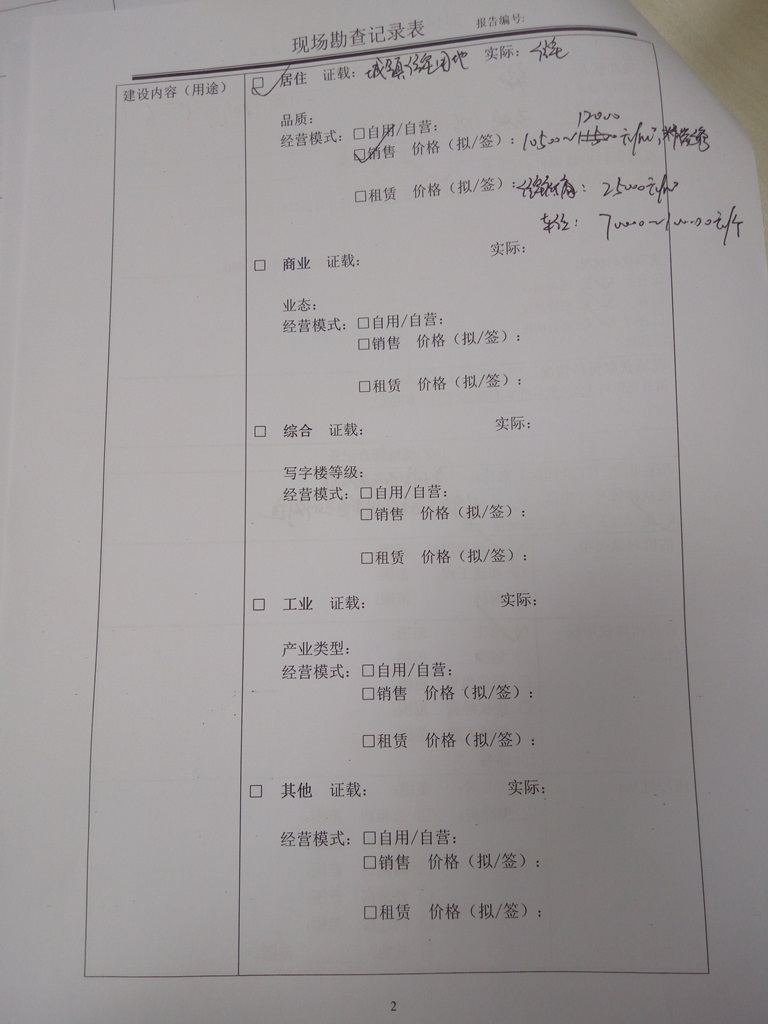 现场勘查记录表 报告编号:
建设内容（用途）
☑ 居住 证载: 城镇住宅用地 实际: 住宅
品质:
12000
经营模式: □自用/自营:
☑销售 价格（拟/签）: 10500~11500元/m²,
□租赁 价格（拟/签）: 25000元/m²
车位: 70000~100000元/个
□ 商业 证载: 实际:
业态:
经营模式: □自用/自营:
□销售 价格（拟/签）:
□租赁 价格（拟/签）:
□ 综合 证载: 实际:
写字楼等级:
经营模式: □自用/自营:
□销售 价格（拟/签）:
□租赁 价格（拟/签）:
□ 工业 证载: 实际:
产业类型:
经营模式: □自用/自营:
□销售 价格（拟/签）:
□租赁 价格（拟/签）:
□ 其他 证载: 实际:
经营模式: □自用/自营:
□销售 价格（拟/签）:
□租赁 价格（拟/签）:
2